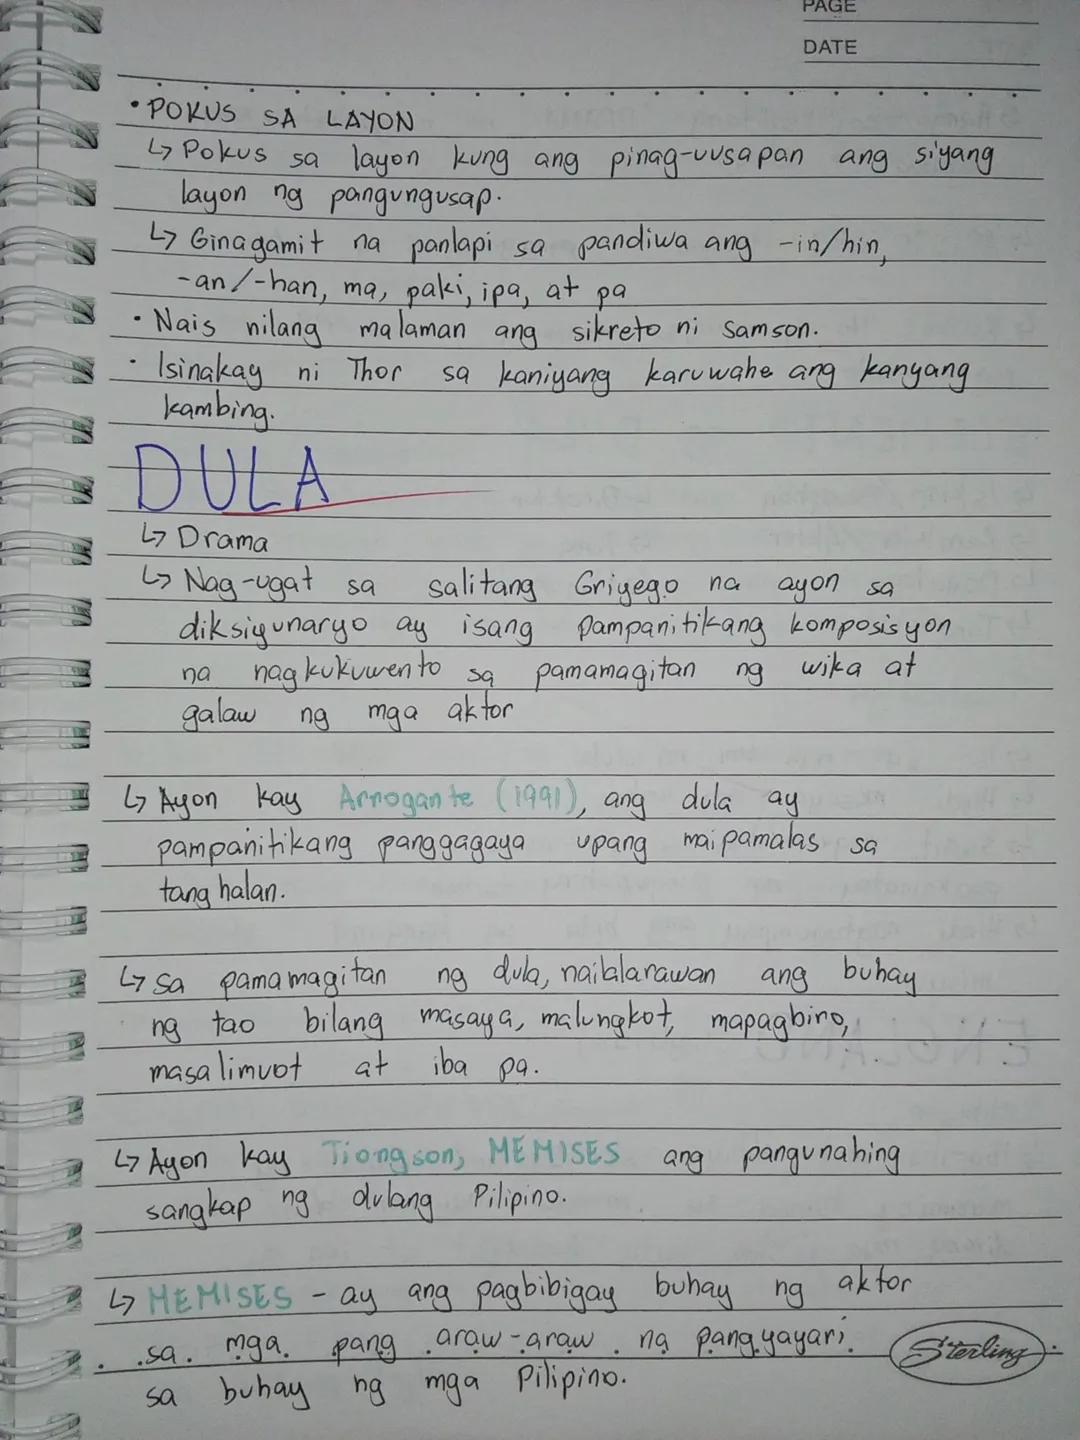 PAGE
DATE
• POKUS SA LAYON
↳ Pokus sa layon kung ang pinag-uusapan ang siyang
layon ng pangungusap.
↳ Ginagamit na panlapi sa pandiwa ang -in/hin,
-an/-han, ma, paki, ipa, at pa
• Nais nilang malaman ang sikreto ni Samson.
• Isinakay ni Thor sa kaniyang karuwahe ang kanyang
kambing.
DULA
↳ Drama
↳ Nag-ugat sa salitang Griyego na ayon sa
diksiyunaryo ay isang pampanitikang komposisyon
na nagkukuwento sa pamamagitan ng wika at
galaw ng mga aktor
↳ Ayon kay Arrogante (1991), ang dula ay
pampanitikang panggagaya upang maipamalas sa
tanghalan.
↳ sa pamamagitan ng dula, nailalarawan ang buhay
ng tao bilang masaya, malungkot, mapagbiro,
masalimuot at iba pa.
↳ Ayon kay Tiongson, MEMISES ang pangunahing
sangkap ng dulang Pilipino.
↳ MEMISES - ay ang pagbibigay buhay ng aktor
sa mga pang araw-araw na pangyayari
sa buhay ng mga Pilipino.
Sterling